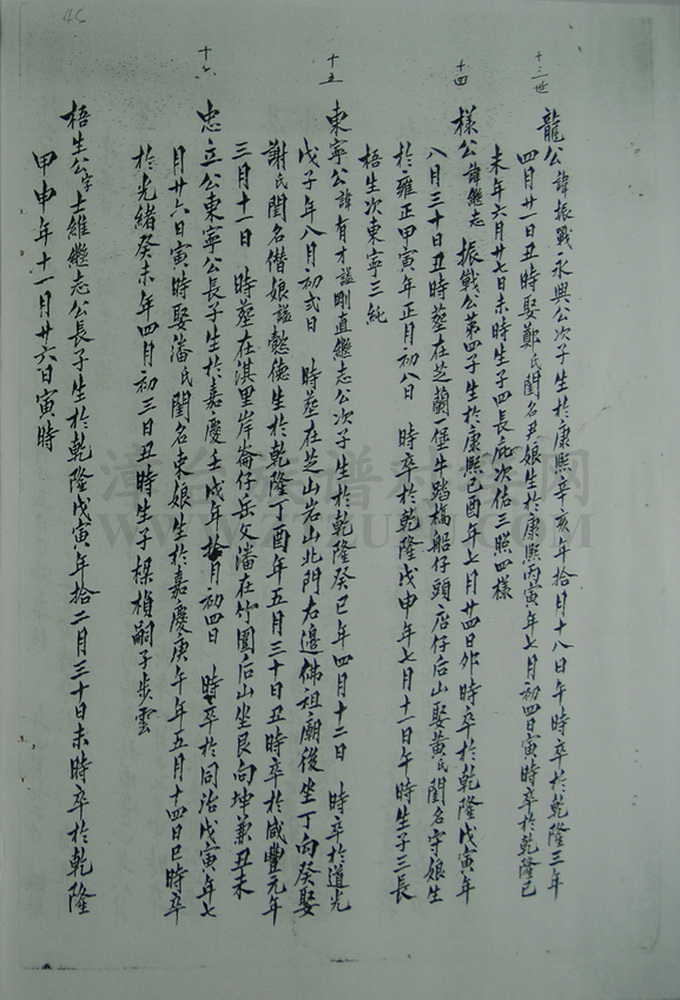 45
十三世
龍公諱振戰永興公次子生於康熙辛亥年拾月十八日午時卒於乾隆三年
四月廿一日丑時娶鄭氏閨名尹娘生於康熙丙寅年七月初四日寅時卒於乾隆己
未年六月廿七日未時生子四長庇次佑三照四樣
十四
樣公諱繼志 振戰公第四子生於康熙己酉年七月廿四日卯時卒於乾隆戊寅年
八月三十日丑時塟在芝蘭一堡牛踏橋船仔頭店仔后山娶黃氏閨名守娘生
於雍正甲寅年正月初八日 時卒於乾隆戊申年七月十一日午時生子三長
梧生次東寧三純
十五
東寧公諱有才謚剛直繼志公次子生於乾隆癸巳年四月十二日 時卒於道光
戊子年八月初弍日 時塟在芝山岩山北門右邊佛祖廟後坐丁向癸娶
謝氏閨名僣娘謚懿德生於乾隆丁酉年五月三十日丑時卒於咸豐元年
三月十一日 時塟在淇里岸崙仔岳父潘在竹圍后山坐艮向坤兼丑未
十六
忠立公東寧公長子生於嘉慶壬戌年拾月初四日 時卒於同治戊寅年七
月廿六日寅時娶潘氏閨名東娘生於嘉慶庚午年五月十四日巳時卒
於光緒癸未年四月初三日丑時生子樑楨嗣子步雲
梧生公字士維繼志公長子生於乾隆戊寅年拾二月三十日未時卒於乾隆
甲申年十一月廿六日寅時
WWW.